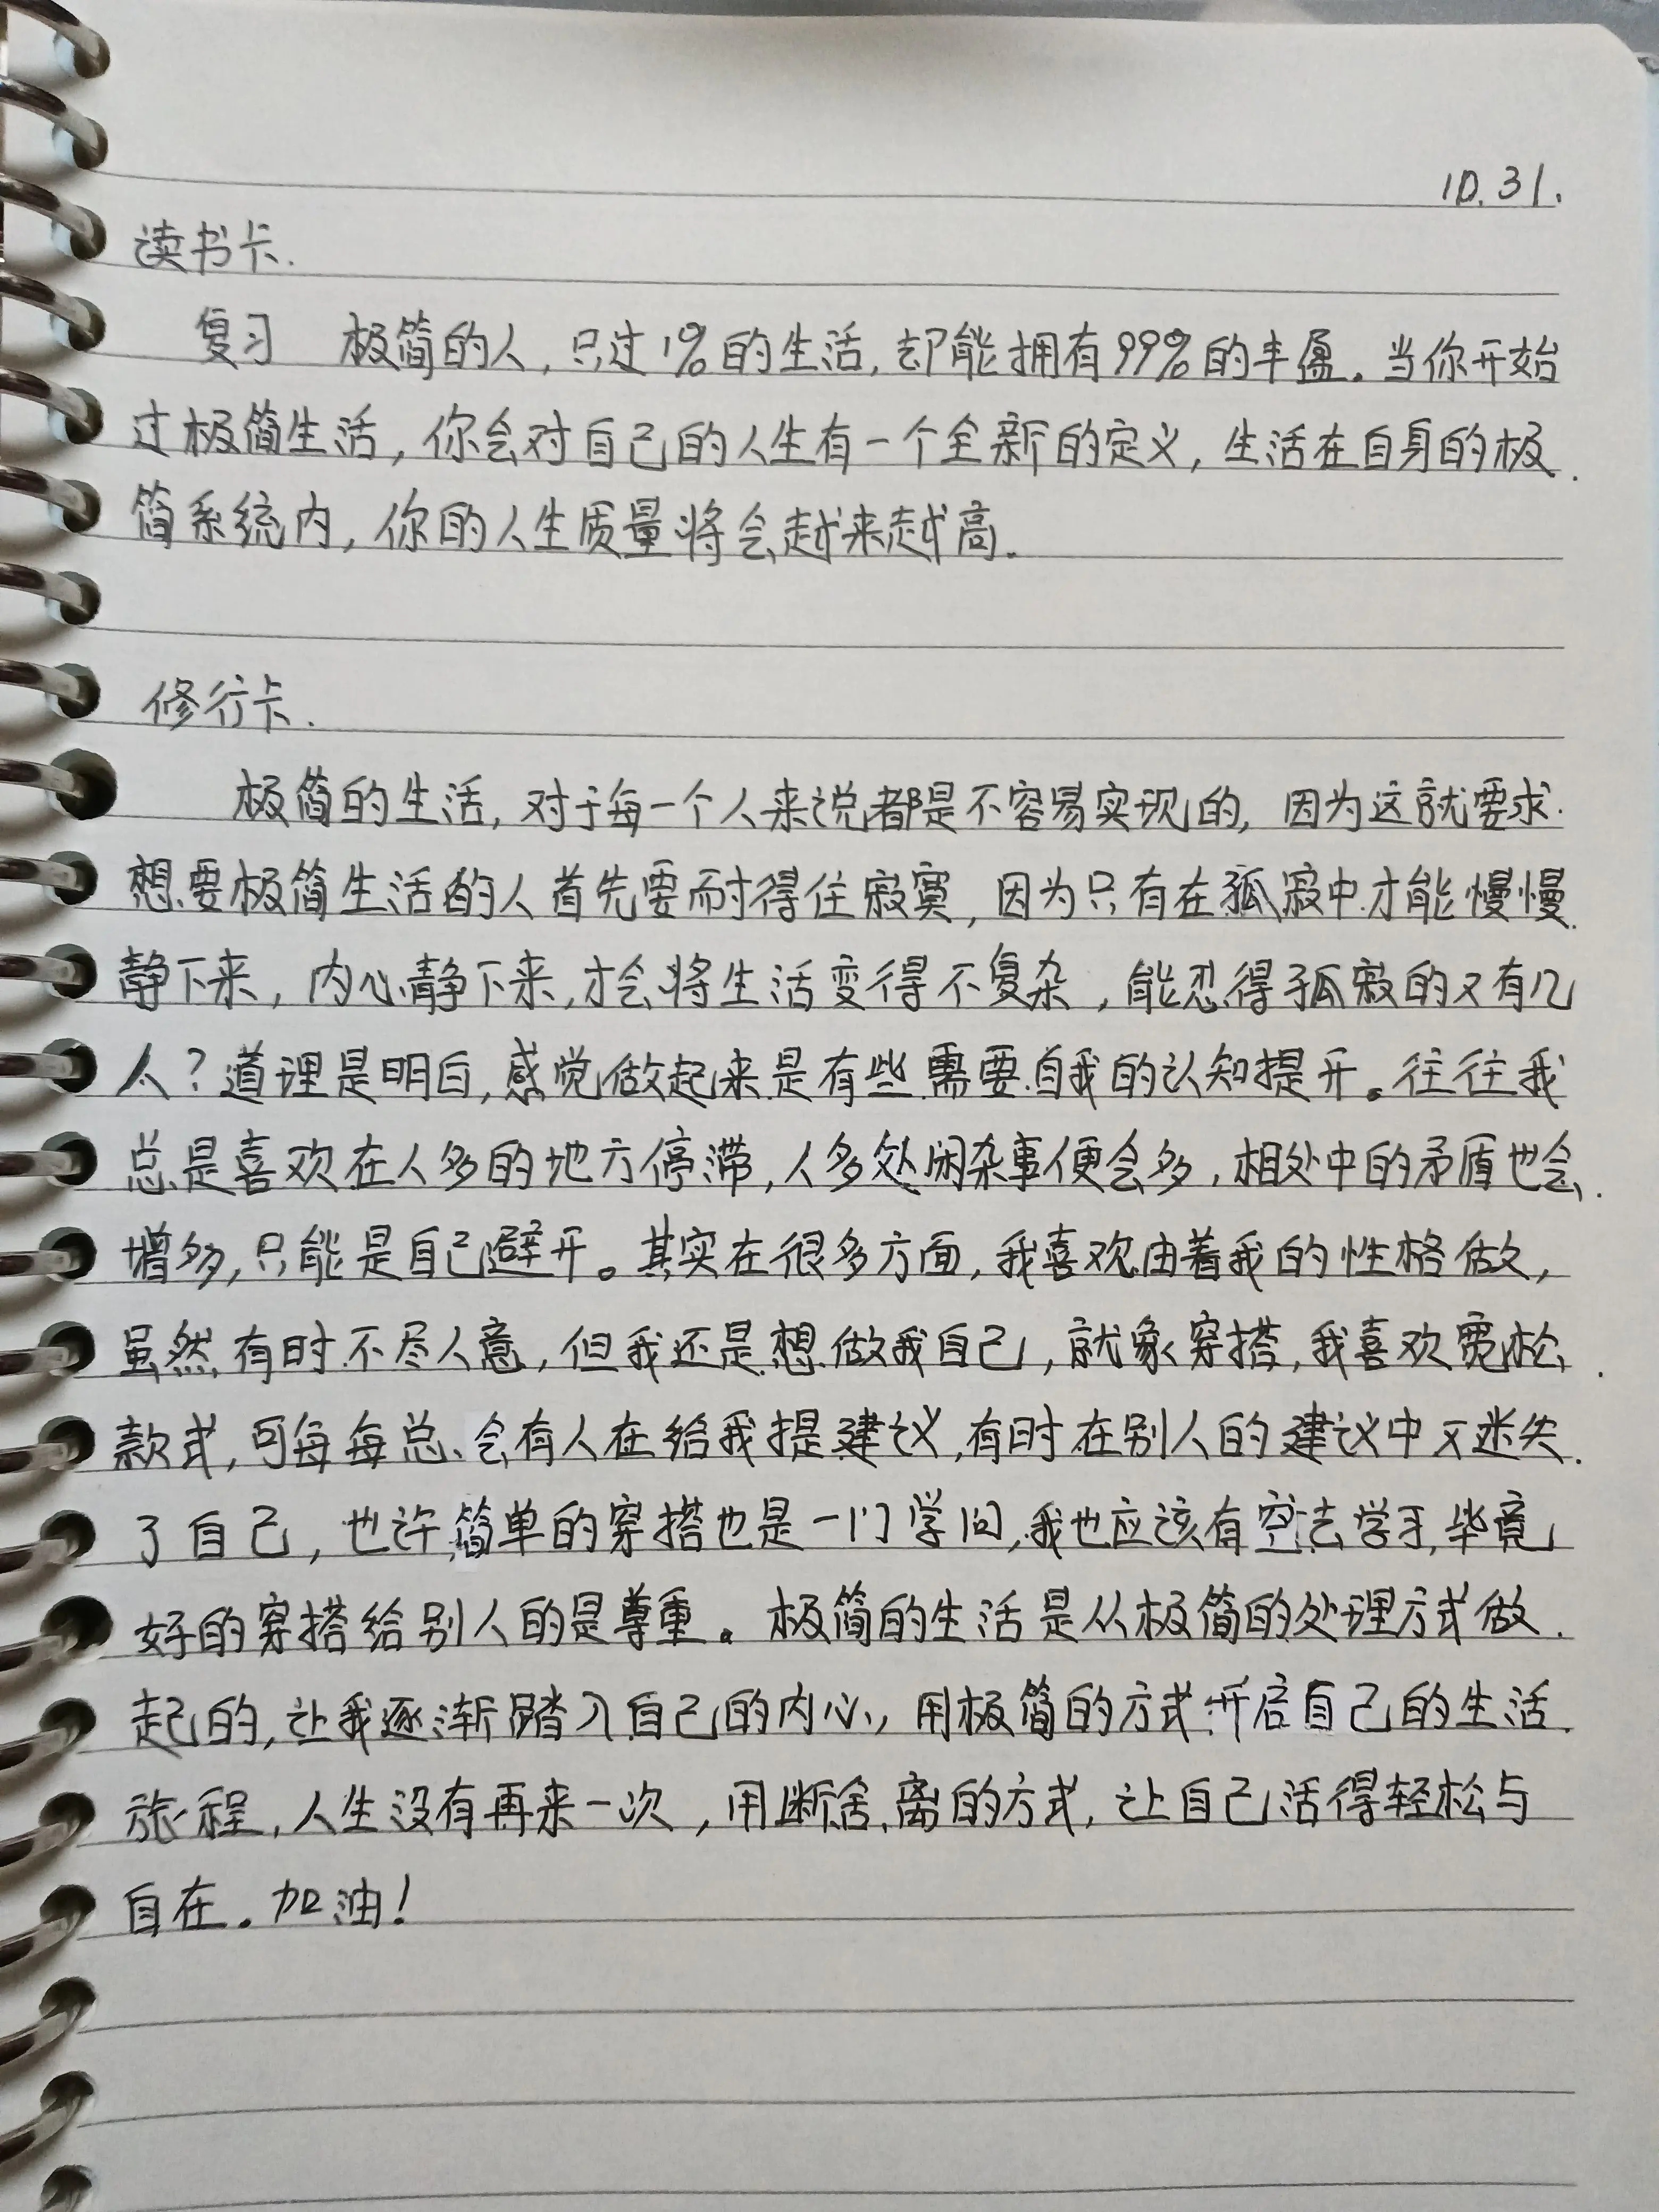 10.31.
读书卡.
复习 极简的人,只过1%的生活,却能拥有99%的丰盈。当你开始
过极简生活,你会对自己的人生有一个全新的定义,生活在自身的极
简系统内,你的人生质量将会越来越高。
修行卡.
极简的生活,对于每一个人来说都是不容易实现的,因为这就要求
想要极简生活的人首先要耐得住寂寞,因为只有在孤寂中才能慢慢
静下来,内心静下来,才会将生活变得不复杂,能忍得孤寂的又有几
人?道理是明白,感觉做起来是有些需要自我的认知提升。往往我
总是喜欢在人多的地方停滞,人多处闲杂事便会多,相处中的矛盾也会
增多,只能是自己避开。其实在很多方面,我喜欢由着我的性格做,
虽然有时不尽人意,但我还是想做我自己,就象穿搭,我喜欢宽松
款式,可每每总会有人在给我提建议,有时在别人的建议中又迷失
了自己,也许简单的穿搭也是一门学问,我也应该有空去学习,毕竟
好的穿搭给别人的是尊重。极简的生活是从极简的处理方式做
起的,让我逐渐踏入自己的内心,用极简的方式开启自己的生活
旅程,人生没有再来一次,用断舍离的方式,让自己活得轻松与
自在。加油!